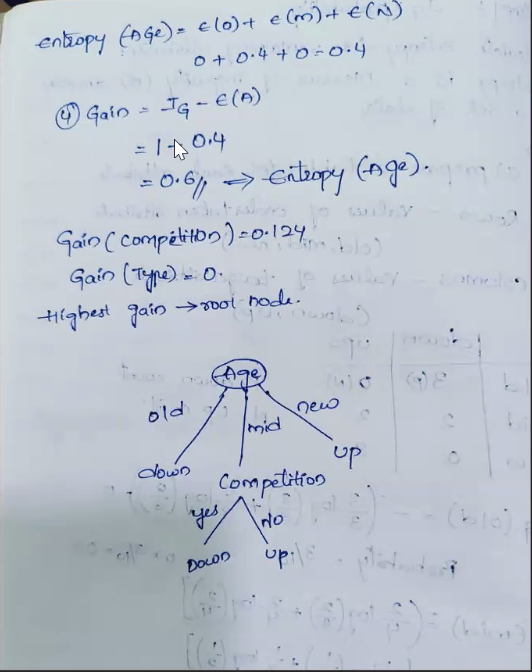 Entropy (Age) = E(O) + E(m) + E(N)
0 + 0.4 + 0 = 0.4
④ Gain = IG - E(A)
= 1 - 0.4
= 0.6// ⇒ Entropy (Age).
Gain (Competition) = 0.124
Gain (Type) = 0.
Highest gain → root node.
Age
old mid new
down Competition up
yes no
Down up.